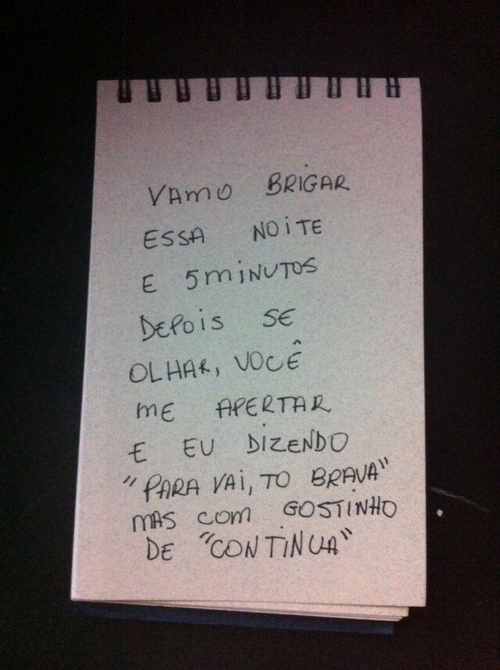 VAMO BRIGAR
ESSA NOITE
E 5 MINUTOS
DEPOIS SE
OLHAR, VOCÊ
ME APERTAR
E EU DIZENDO
"PARA VAI, TO BRAVA"
MAS COM GOSTINHO
DE "CONTINUA"